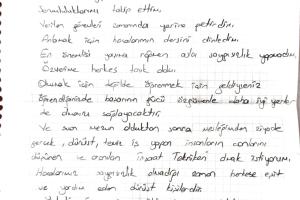 Sorumluluklarımı takip ettim.
Verilen görevleri zamanında yerine getirdim.
Anlamak için hocalarımın dersini dinledim.
En önemlisi yanıma rağmen asla saygısızlık yapmadım.
Özverime herkes tanık oldu.
Okumak için değilde öğrenmek için geldiyseniz
öğrendiğinizde başarının gücü sizi daha iyi yerler
de olmanızı sağlayacaktır.
Ve son mezun olduktan sonra mesleğimden ziyade
gerçek, dürüst, temiz iş yapan insanların canlarını
düşünen ve aranılan inşaat Teknikeri olmak istiyorum.
Hocalarımız saygısızlık olmadığı zaman herkese eşit
ve yardım eden dürüst kişilerdir.